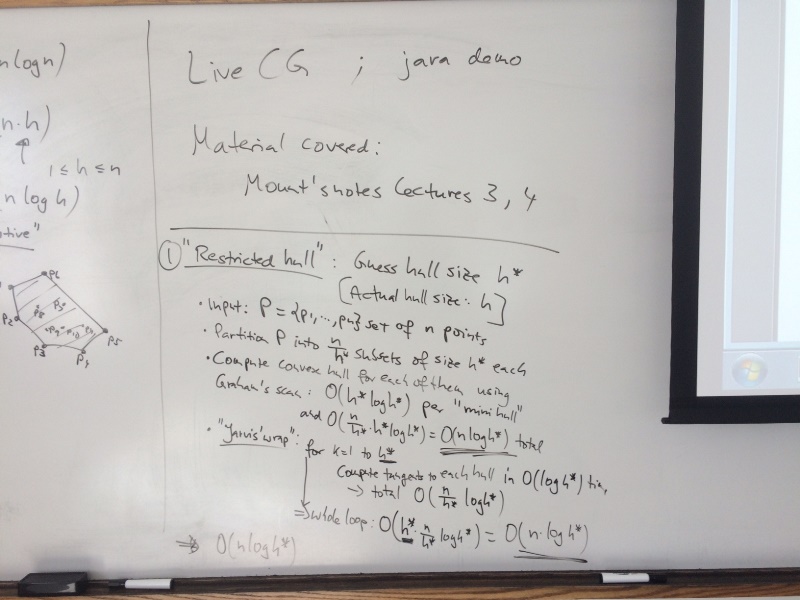 nlogn)
n·h)
1 ≤ h ≤ n
n log h)
tive"
P6
P2
P3
P4
P5
Live CG ; java demo
Material covered:
Mount's notes Lectures 3, 4
① "Restricted hull": Guess hull size h*
[Actual hull size: h]
• Input: P = {p1, ..., pn} set of n points
• Partition P into n/h* subsets of size h* each
• Compute convex hull for each of them using
Graham's scan: O(h* log h*) per "mini hull"
and O(n/h* · h* log h*) = O(n log h*) total
• "Jarvis' wrap": for k=1 to h*
Compute tangents to each hull in O(log h*) time,
→ total O(n/h* log h*)
⇒ whole loop: O(h* · n/h* log h*) = O(n · log h*)
⇒ O(n log h*)